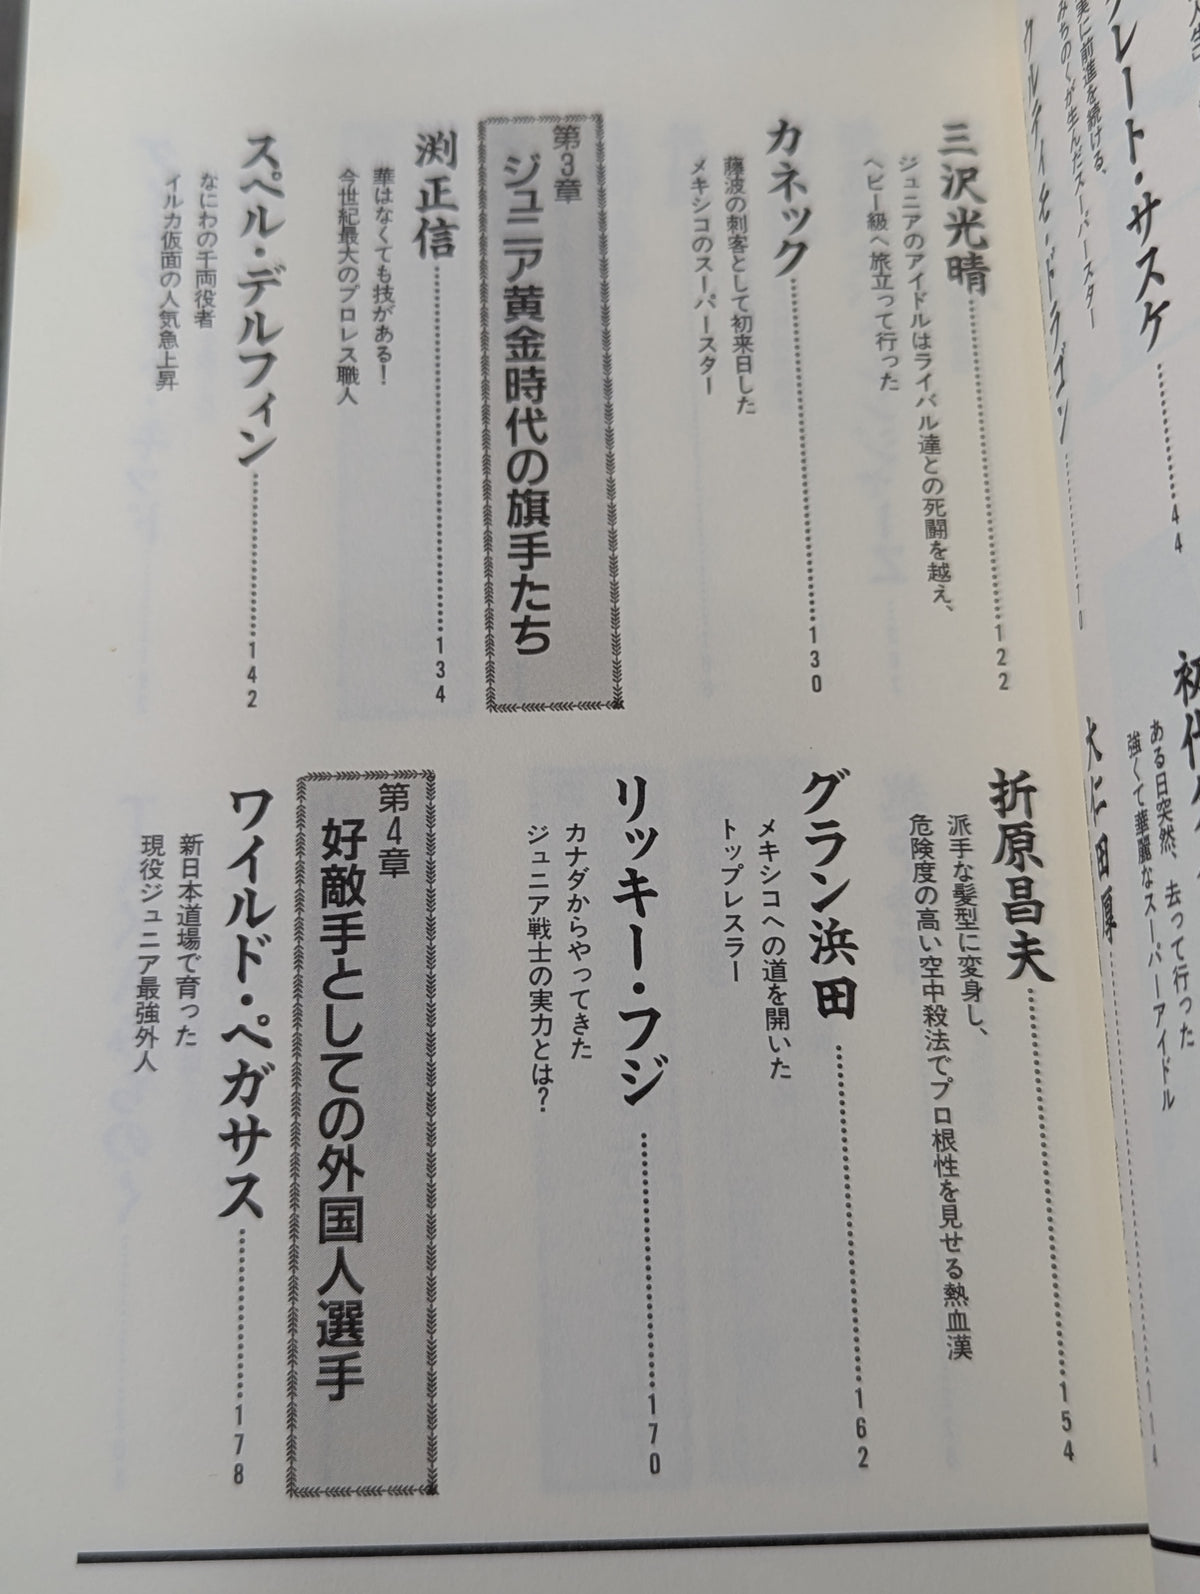 グレート・サスケ…………44
実に前進を続ける、
みちのくが生んだスーパースター
ウルティモ・ドラゴン…………70
ある日突然、去って行った
強くて華麗なスーパーアイドル
大仁田厚…………114
三沢光晴…………122
ジュニアのアイドルはライバル達との死闘を越え、
ヘビー級へ旅立って行った
カネック…………130
藤波の刺客として初来日した
メキシコのスーパースター
第3章
ジュニア黄金時代の旗手たち
渕正信…………134
華はなくても技がある!
今世紀最大のプロレス職人
スペル・デルフィン…………142
なにわの千両役者
イルカ仮面の人気急上昇
折原昌夫…………154
派手な髪型に変身し、
危険度の高い空中殺法でプロ根性を見せる熱血漢
グラン浜田…………162
メキシコへの道を開いた
トップレスラー
リッキー・フジ…………170
カナダからやってきた
ジュニア戦士の実力とは?
第4章
好敵手としての外国人選手
ワイルド・ペガサス…………178
新日本道場で育った
現役ジュニア最強外人